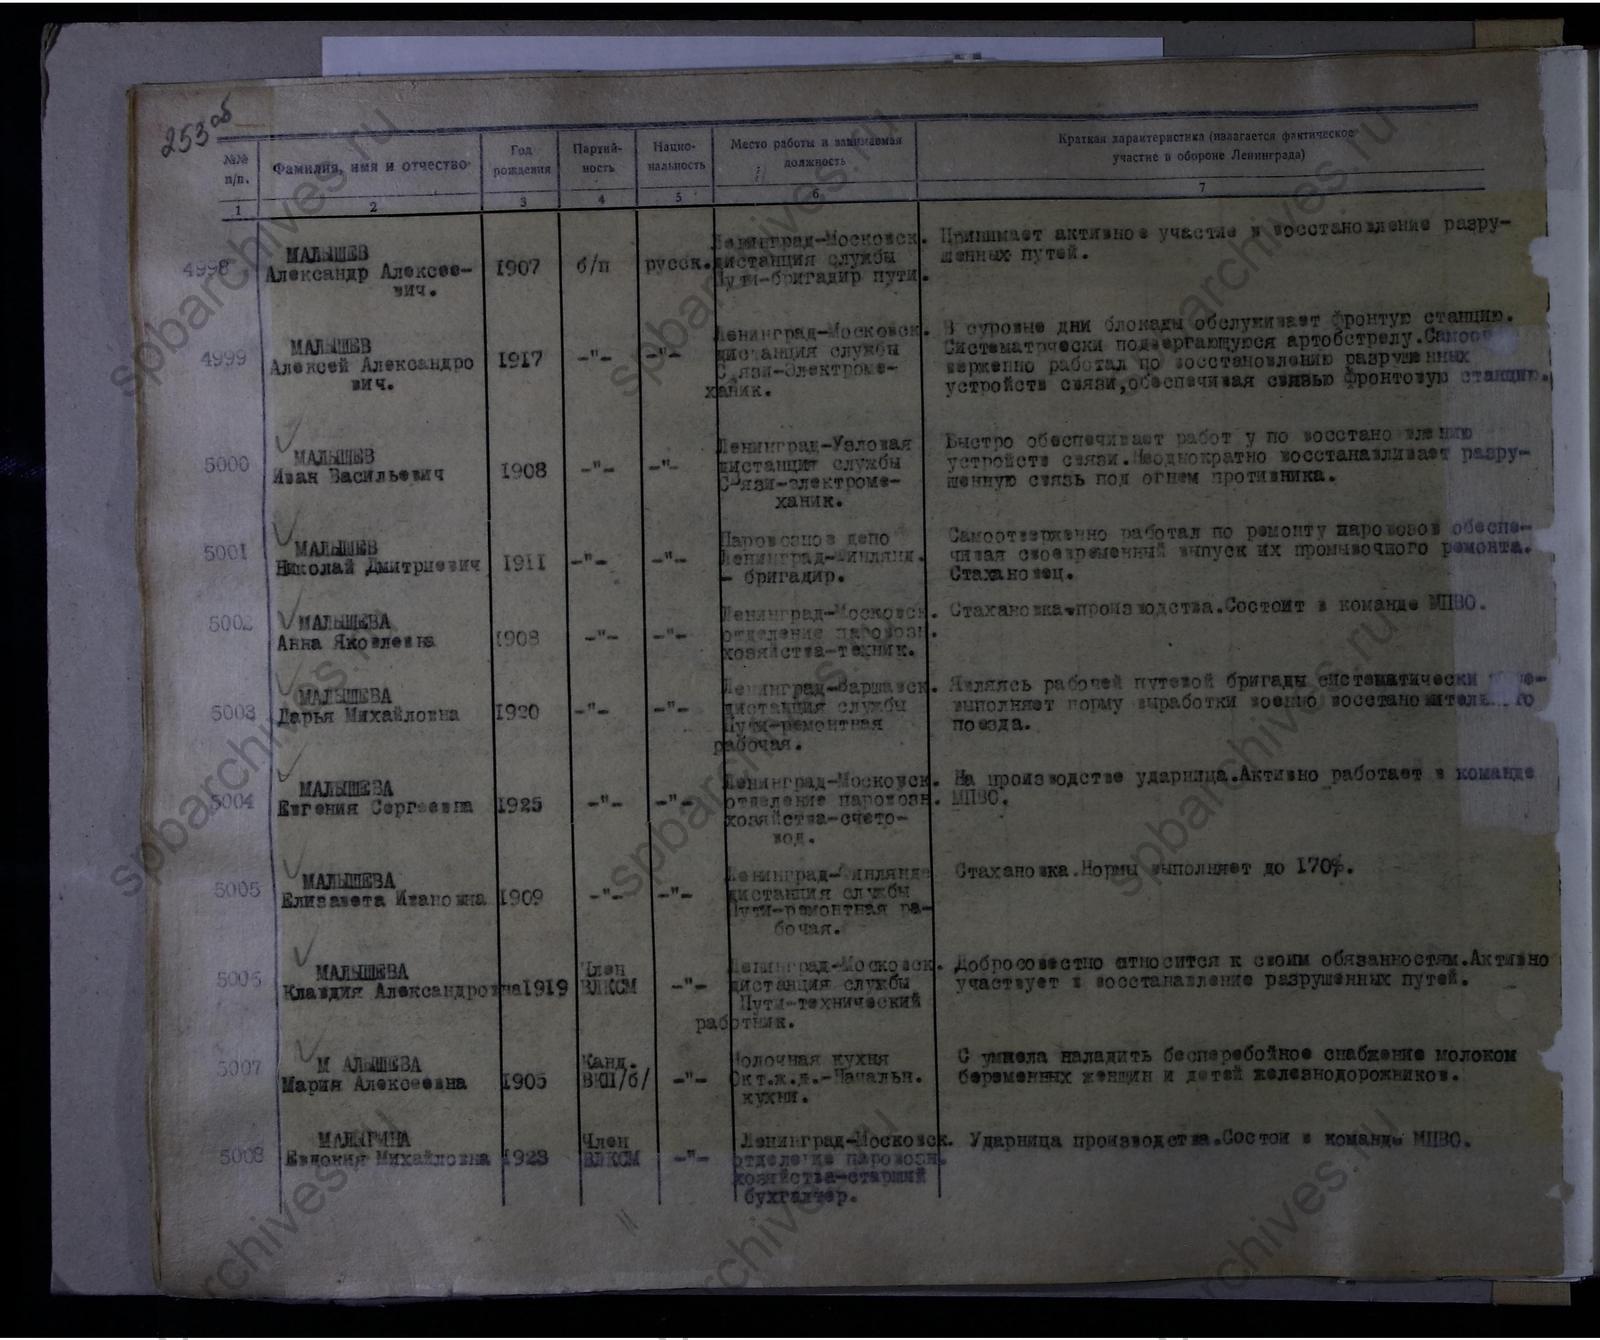 253 об
№№ п/п.
Фамилия, имя и отчество
Год рождения
Партий-ность
Нацио-нальность
Место работы и занимаемая должность
Краткая характеристика (излагается фактическое участие в обороне Ленинграда)
1 2 3 4 5 6 7
4998
МАЛЫШЕВ
Александр Алексее-
вич.
1907
б/п
русск.
Ленинград-Московск.
дистанция службы
Пути-бригадир пути.
Принимает активное участие в восстановление разру-
шенных путей.
4999
МАЛЫШЕВ
Алексей Александро
вич.
1917
-"-
-"-
Ленинград-Московск.
дистанция службы
Связи-Электроме-
ханик.
В суровые дни блокады обслуживает фронтую станцию.
Систематически подвергающуюся артобстрелу.Самоот
верженно работал по восстановлению разрушенных
устройств связи,обеспечивая связью фронтовую станцию.
5000
МАЛЫШЕВ
Иван Васильевич
1908
-"-
-"-
Ленинград-Узловая
дистанция службы
Связи-электроме-
ханик.
Быстро обеспечивает работ у по восстано влению
устройств связи.Неоднократно восстанавливает разру-
шенную связь под огнем противника.
5001
МАЛЫШЕВ
Николай Дмитриевич
1911
-"-
-"-
Паровозное депо
Ленинград-Финлянд.
- бригадир.
Самоотверженно работал по ремонту паровозов обеспе-
чивая своевременный выпуск их промывочного ремонта.
Стахановец.
5002
МАЛЫШЕВА
Анна Яковлевна
1908
-"-
-"-
Ленинград-Московск.
отделение паровозн.
хозяйства-техник.
Стахановка производства.Состоит в команде МПВО.
5003
МАЛЫШЕВА
Дарья Михайловна
1920
-"-
-"-
Ленинград-Варшавск.
дистанция службы
Пути-ремонтная
рабочая.
Являясь рабочей путевой бригады систематически
выполняет норму выработки военно восстановительного
поезда.
5004
МАЛЫШЕВА
Евгения Сергеевна
1925
-"-
-"-
Ленинград-Московск.
отделение паровозн.
хозяйства-счето-
вод.
На производстве ударница.Активно работает в команде
МПВО.
5005
МАЛЫШЕВА
Елизавета Ивановна
1909
-"-
-"-
Ленинград-Финлянд
дистанция службы
Пути-ремонтная ра-
бочая.
Стахановка.Нормы выполняет до 170%.
5006
МАЛЫШЕВА
Клавдия Александровна
1919
Член
ВЛКСМ
-"-
Ленинград-Московск.
дистанция службы
Пути-технический
работник.
Добросовестно относится к своим обязанностям.Активно
участвует в восстанавление разрушенных путей.
5007
М АЛЫШЕВА
Мария Алексеевна
1905
Канд.
ВКП/б/
-"-
Молочная кухня
Окт.ж.д.-Начальн.
кухни.
С умиела наладить бесперебойное снабжение молоком
беременных женщин и детей железнодорожников.
5008
МАЛЯГИНА
Евдокия Михайловна
1923
Член
ВЛКСМ
-"-
Ленинград-Московск.
отделение паровозн.
хозяйства-старший
бухгалтер.
Ударница производства.Состои в команде МПВО.
spbarchives.ru